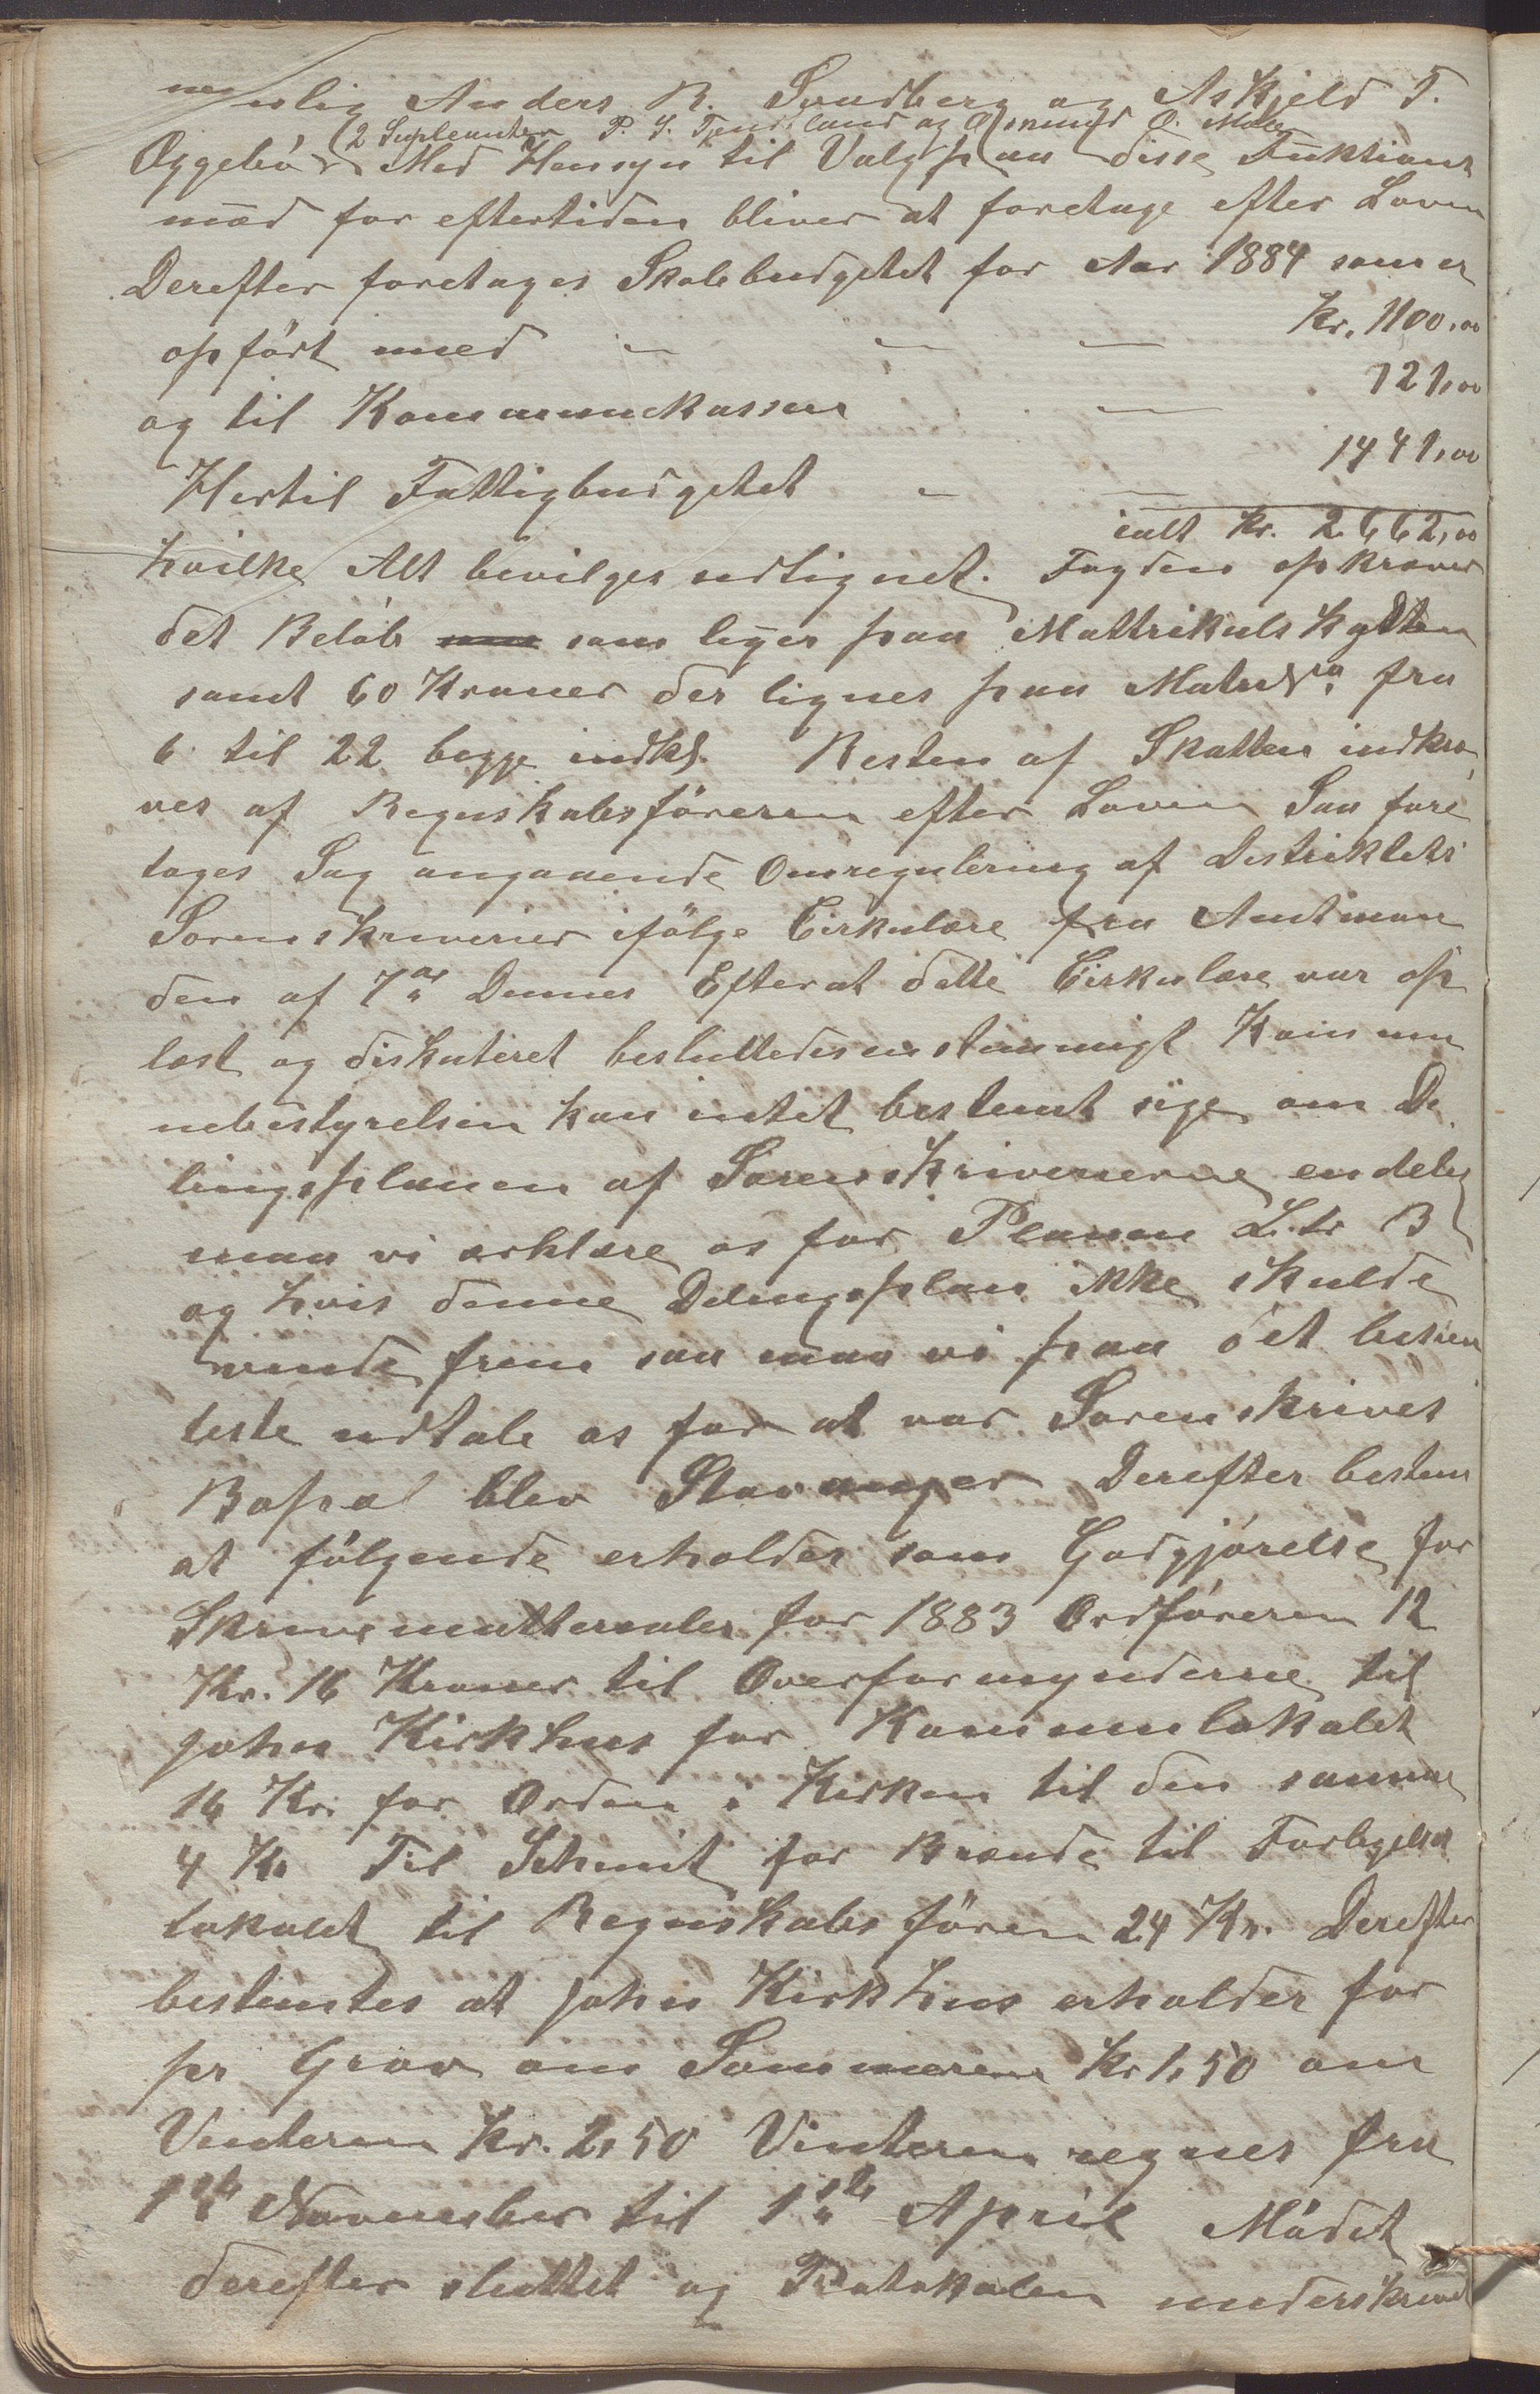 nemlig Anders B. Sundberg og Askjeld T.
(2 Supleanter P. S. Tjendsland og Osmund O. Mele
Oggebö Med Hensyn til Valg paa disse Funktions
mæd for eftertiden bliver at foretage efter Loven
Derefter foretages Skolebudgetet for Aar 1884 som er
opfört med - - - Kr. 1100,00
og til Kommunekassen - 121,00
Hertil Fattigbudgetet - - 1441,00
ialt Kr. 2662,00
hvilke Alt bevilges udlignet. Fogden opkræver
det Belöb som liges paa Mattrikulskylden
samt 60 Kroner der lignes paa Matr fra
6 til 22 begge indkl. Resten af Skatten indkræ
ves af Regnskabsföreren efter Loven Saa fore
tages Sag angaaende Omregulering af Destriktets
Sorenskriverier ifölge Cirkulære fra Amtman
den af 7de Dennes Efterat dette Cirkulære var op
læst og diskuteret besluttedes enstemmigt Kommu
nebestyrelsen kan intet bestemt sige om De
lingsplanen af Sorenskriverierne endelig
maa vi erklære os for Planen Litr B
og hvis denne Delingsplan ikke skulde
vinde frem saa maa vi paa det bestem
teste udtale os for at vor Sorenskrives
Bopæl blev Stavanger Derefter bestem
at fölgende erholder som Godgjörelse for
Skrivematterealer for 1883 Ordföreren 12
Kr. 16 Kroner til Overformynderne til
John Kirkhus for Kommunlokalet
16 Kr. for Orden i Kirken til den samme
4 Kr Til Schmit for Brænde til Forligelses
lokalet til Regnskabsfören 24 Kr. Derefter
bestemtes at John Kirkhus erholder for
pr Grav om Sommeren Kr 1,50 om
Vinteren Kr. 2,50 Vinteren regnes fra
1ste November til 1ste April Mödet
derefter sluttet og Protokolen underskrevet